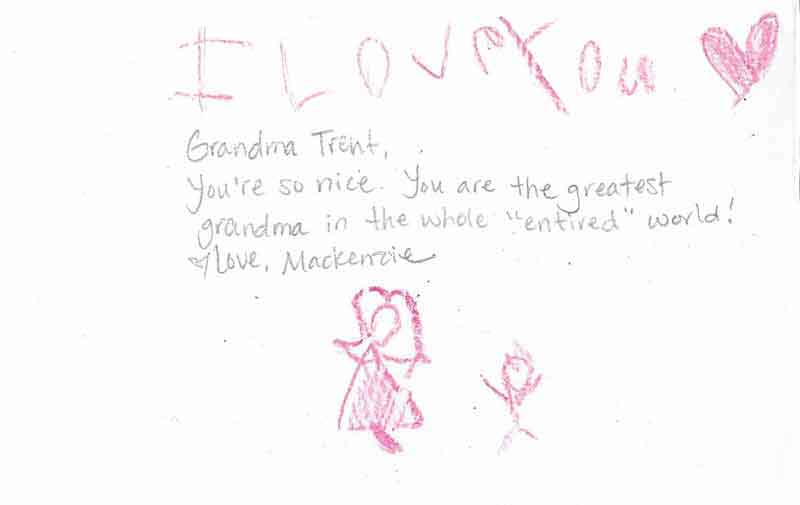 I LOVE YOu
Grandma Trent,
You're so nice. You are the greatest
grandma in the whole "entired" world!
Love, Mackenzie